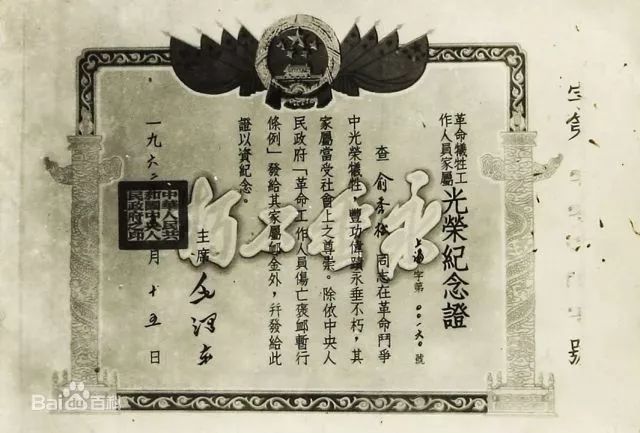 革命犧牲工
作人員家屬
光榮紀念證
上海字第00一六0號
查俞秀松同志在革命鬥爭
中光榮犧牲,豐功偉蹟永垂不朽,其
家屬當受社會上之尊崇。除依中央人
民政府「革命工作人員傷亡褒卹暫行
條例」發給其家屬卹金外,并發給此
證以資紀念。
永垂不朽
主席 毛澤東
一九六二
月十五日
中華人民共
和國中央人
民政府之印
號
Bai百科